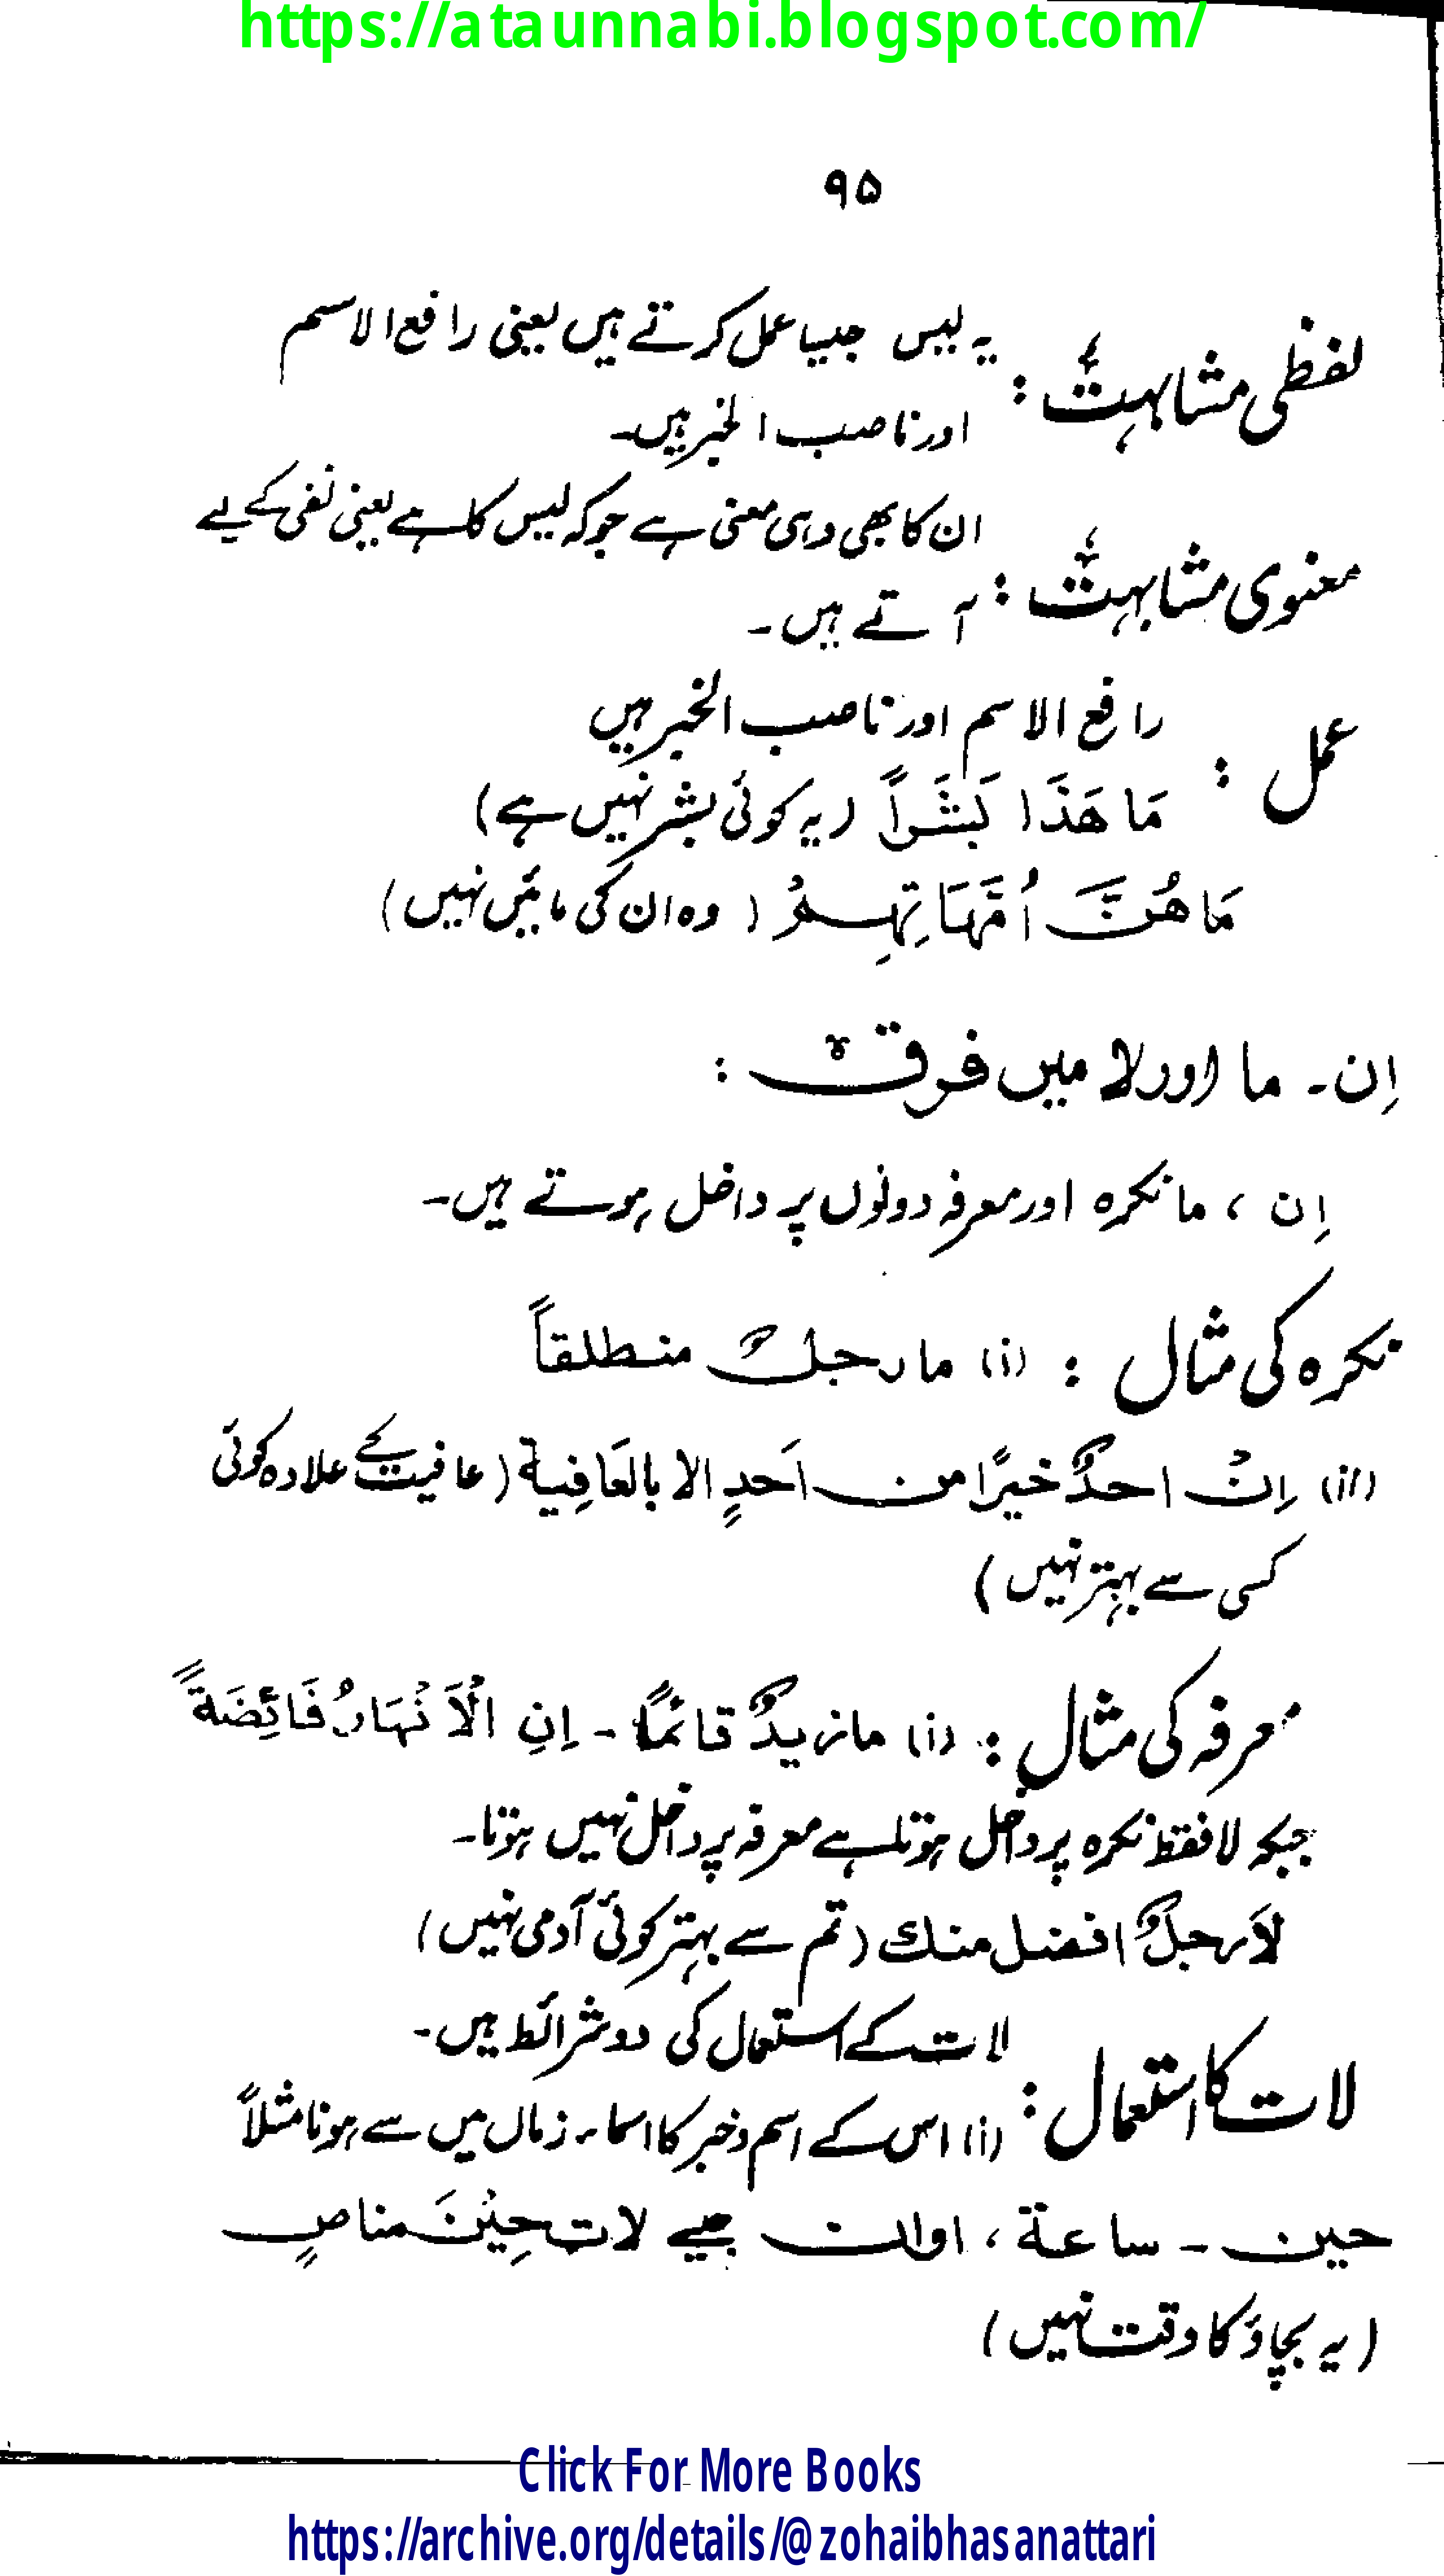 https://ataunnabi.blogspot.com/
۹۵
لفظی مشابہت : یہ لیس جیسا عمل کرتے ہیں یعنی رافع الاسم
اور ناصب الخبر ہیں۔
معنوی مشابہت : ان کا بھی وہی معنی ہے جو کہ لیس کا ہے یعنی نفی کے لیے
آتے ہیں۔
عمل : رافع الاسم اور ناصب الخبر ہیں
مَا هَذَا بَشَراً (یہ کوئی بشر نہیں ہے)
مَا هُنَّ اُمَّهَاتِهِمْ (وہ ان کی مائیں نہیں)
اِن۔ ما اور لا میں فرق :
اِن ، ما نکرہ اور معرفہ دونوں پر داخل ہوتے ہیں۔
نکرہ کی مثال : (i) ما رجلٌ منطلقاً
(ii) اِنْ احدٌ خیرًا من اَحدٍ الا بالعَافِیة (عافیت کے علاوہ کوئی
کسی سے بہتر نہیں)
معرفہ کی مثال : (i) ما زیدٌ قائمًا ۔ اِنِ الْاَنْهَارُ فَائِضَةً
جبکہ لا فقط نکرہ پر داخل ہوتا ہے معرفہ پر داخل نہیں ہوتا۔
لَا رجلٌ افضل منك (تم سے بہتر کوئی آدمی نہیں)
لات کا استعمال : لات کے استعمال کی دو شرائط ہیں۔
(i) اس کے اسم و خبر کا اسماء زماں میں سے ہونا مثلاً
حین ۔ ساعة ، اوان جیسے لات حِیْنَ مناصٍ
(یہ بچاؤ کا وقت نہیں)
Click For More Books
https://archive.org/details/@zohaibhasanattari